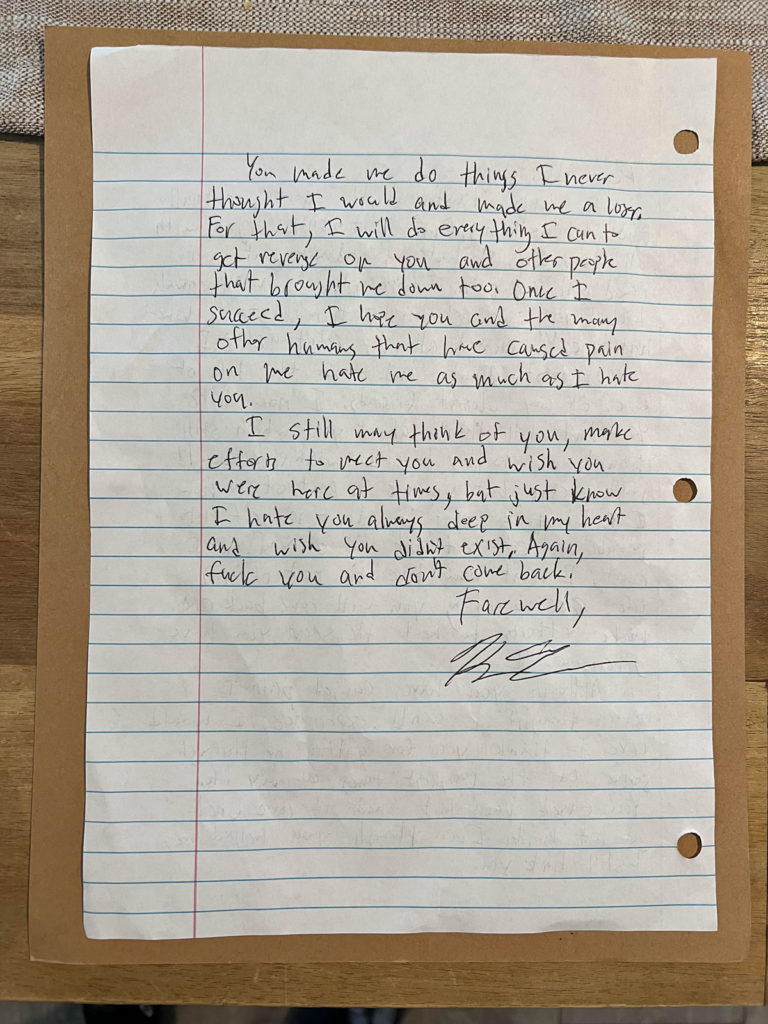 You made me do things I never
thought I would and made me a loser.
For that, I will do everything I can to
get revenge on you and other people
that brought me down too. Once I
succeed, I hope you and the many
other humans that have caused pain
on me hate me as much as I hate
you.
I still may think of you, make
efforts to meet you and wish you
were here at times, but just know
I hate you always deep in my heart
and wish you didn't exist. Again,
fuck you and don't come back.
Farewell,